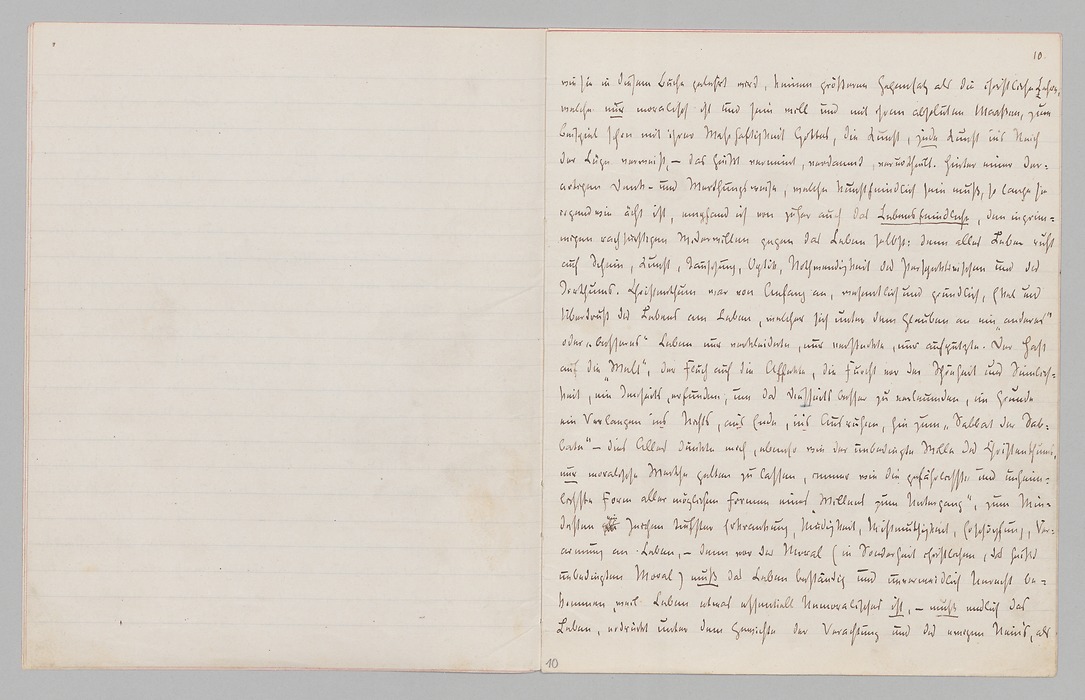 10.
wie sie in diesem Buche gelehrt wird, keinen größeren Gegensatz als die christliche Lehre,
welche nur moralisch ist und sein will und mit ihren absoluten Maassen, zum
Beispiel schon mit ihrer Wahrhaftigkeit Gottes, die Kunst, jede Kunst ins Reich
der Lüge verweist, — das heißt verneint, verdammt, verurtheilt. Hinter einer der=
artigen Denk- und Werthungsweise, welche kunstfeindlich sein muß, so lange sie
irgendwie ächt ist, empfand ich von jeher auch das Lebensfeindliche, den ingrim=
migen rachsüchtigen Widerwillen gegen das Leben selbst: denn alles Leben ruht
auf Schein, Kunst, Täuschung, Optik, Nothwendigkeit des Perspektivischen und des
Irrthums. Christenthum war von Anfang an, wesentlich und gründlich, Ekel und
Überdruß des Lebens am Leben, welcher sich unter dem Glauben an ein „anderes"
oder „besseres" Leben nur verkleidete, nur versteckte, nur aufputzte. Der Haß
auf die „Welt", der Fluch auf die Affekte, die Furcht vor der Schönheit und Sinnlich=
keit, ein Jenseits, erfunden, um das Diesseits besser zu verleumden, im Grunde
ein Verlangen ins Nichts, ans Ende, ins Ausruhen, hin zum „Sabbat der Sab=
bate" — dies Alles dünkte mich, ebenso wie der unbedingte Wille des Christenthums,
nur moralische Werthe gelten zu lassen, immer wie die gefährlichste und unheim=
lichste Form aller möglichen Formen eines „Willens zum Untergang", zum Min=
desten Zeichen tiefster Erkrankung, Müdigkeit, Mißmuthigkeit, Erschöpfung, Ver=
armung an Leben, — denn vor der Moral (in Sonderheit christlichen, das heißt
unbedingten Moral) muß das Leben beständig und unvermeidlich Unrecht be=
kommen, weil Leben etwas essentiell Unmoralisches ist, — muß endlich das
Leben, erdrückt unter dem Gewichte der Verachtung und des ewigen Nein's, als
10